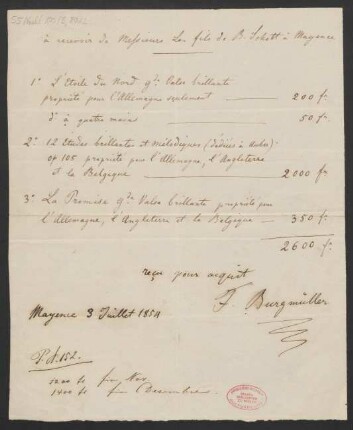 à recevoir de Messieurs Les fils de B. Schott à Mayence
1° L'Etoile du Nord gde Valse brillante
propriété pour l'Allemagne seulement 200 fr.
do à quatre mains 50 fr.
2° 12 Etudes brillantes et mélodiques (dédiées à Auber)
op 105 propriété pour l'Allemagne, l'Angleterre
et la Belgique 2000 fr.
3° La Promise gde Valse brillante propriété pour
l'Allemagne, l'Angleterre et la Belgique 350 fr.
2600 fr.
reçu pour acquit
F. Burgmüller
Mayence 3 Juillet 1854
1200 fr fin Nov.
1400 fr fin Decembre